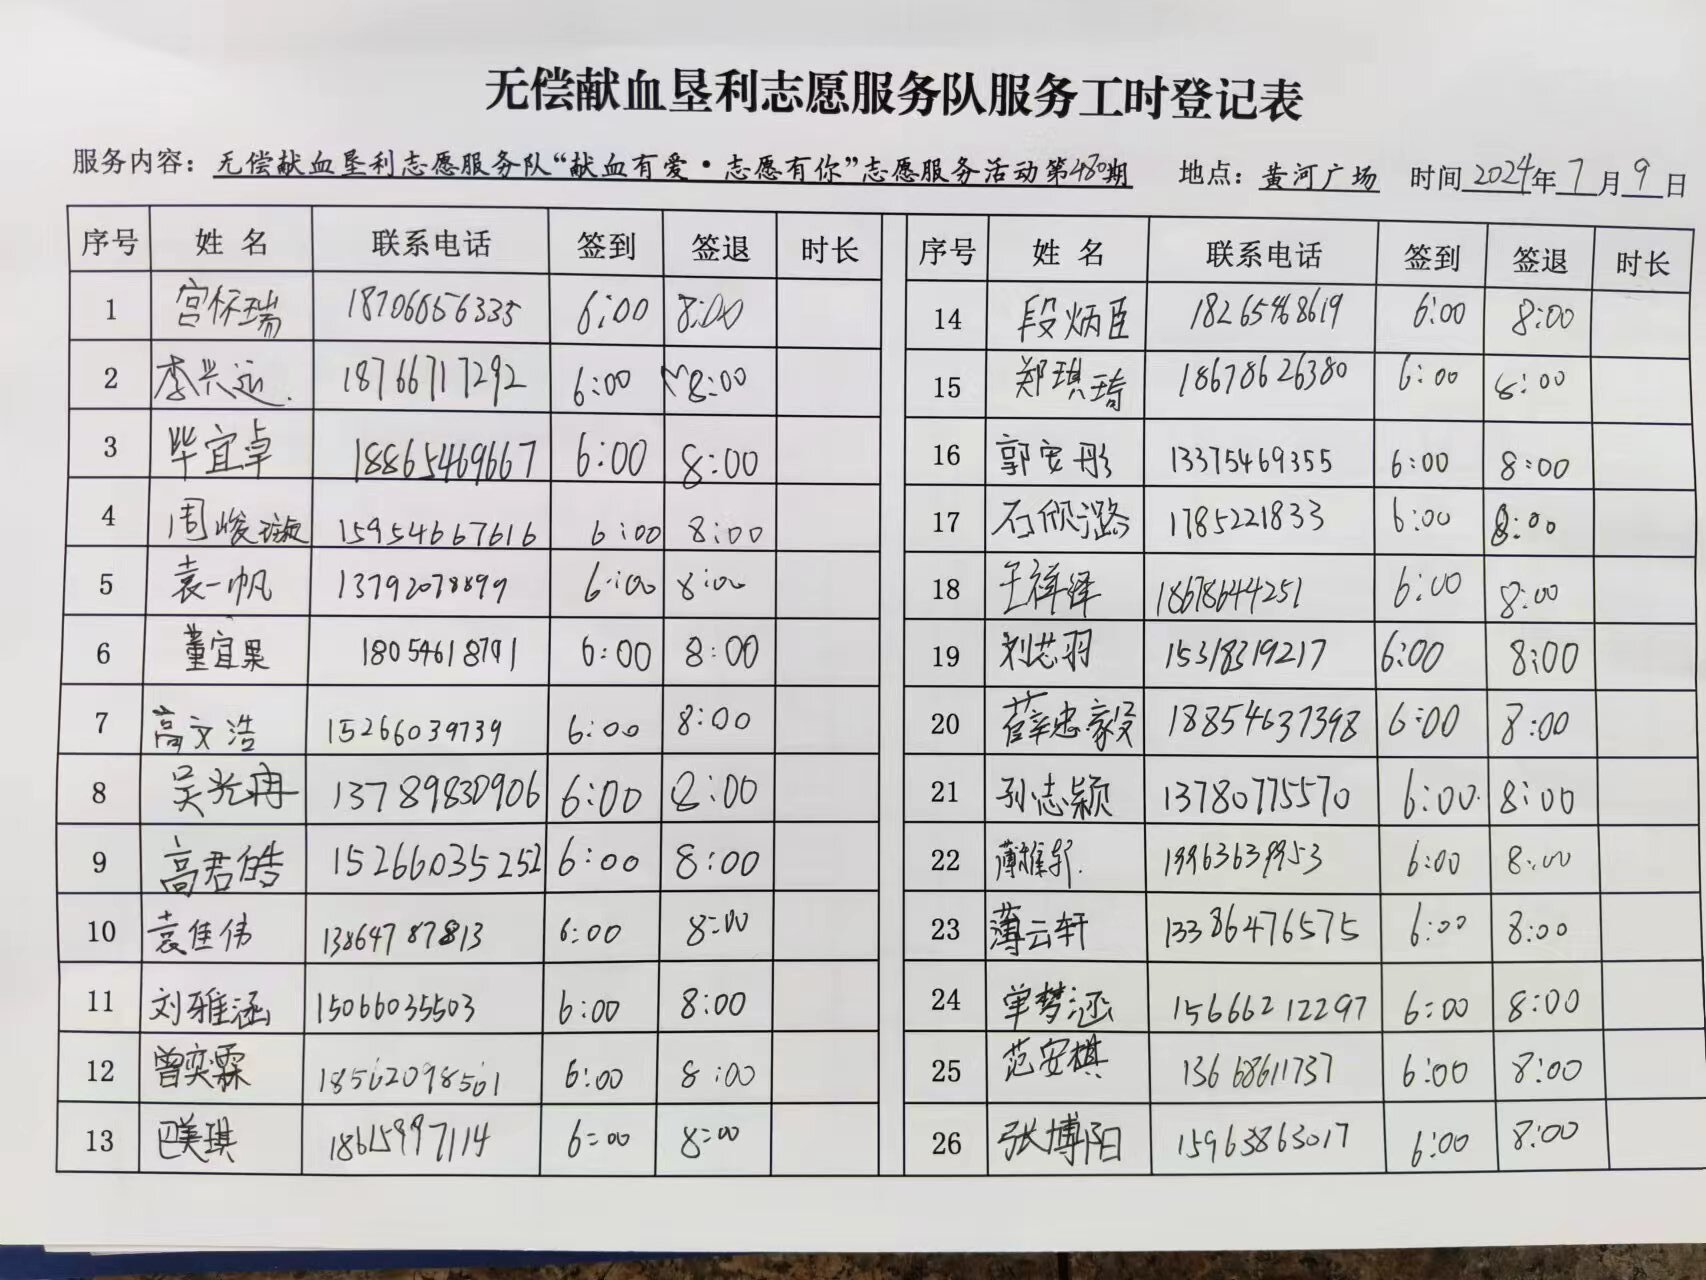 无偿献血垦利志愿服务队服务工时登记表
服务内容：无偿献血垦利志愿服务队“献血有爱·志愿有你”志愿服务活动第480期 地点：黄河广场 时间2024年7月9日
序号 姓名 联系电话 签到 签退 时长 序号 姓名 联系电话 签到 签退 时长
1 宫怀瑞 18706656335 6:00 8:00 14 段炳臣 18265468619 6:00 8:00
2 李兴远 18766717292 6:00 8:00 15 郑琪琦 18678626380 6:00 8:00
3 毕宜卓 18865469667 6:00 8:00 16 郭安彤 13375469355 6:00 8:00
4 周峻璇 15954667616 6:00 8:00 17 石欣潞 1785221833 6:00 8:00
5 袁一帆 13792078899 6:00 8:00 18 王祥泽 18678644251 6:00 8:00
6 董宜果 18054618791 6:00 8:00 19 刘芯羽 15318319217 6:00 8:00
7 高文浩 15266039739 6:00 8:00 20 薛忠毅 18854637398 6:00 8:00
8 吴光冉 13789830906 6:00 8:00 21 孙志颖 13780775570 6:00 8:00
9 高君皓 15266035252 6:00 8:00 22 19963639953 6:00 8:00
10 袁佳伟 13864787813 6:00 8:00 23 薄云轩 13386476575 6:00 8:00
11 刘雅涵 15066035503 6:00 8:00 24 单梦涵 15666212297 6:00 8:00
12 曾奕霖 18562098501 6:00 8:00 25 范安棋 13668611737 6:00 8:00
13 巴美琪 18615997114 6:00 8:00 26 张博阳 15963863017 6:00 8:00